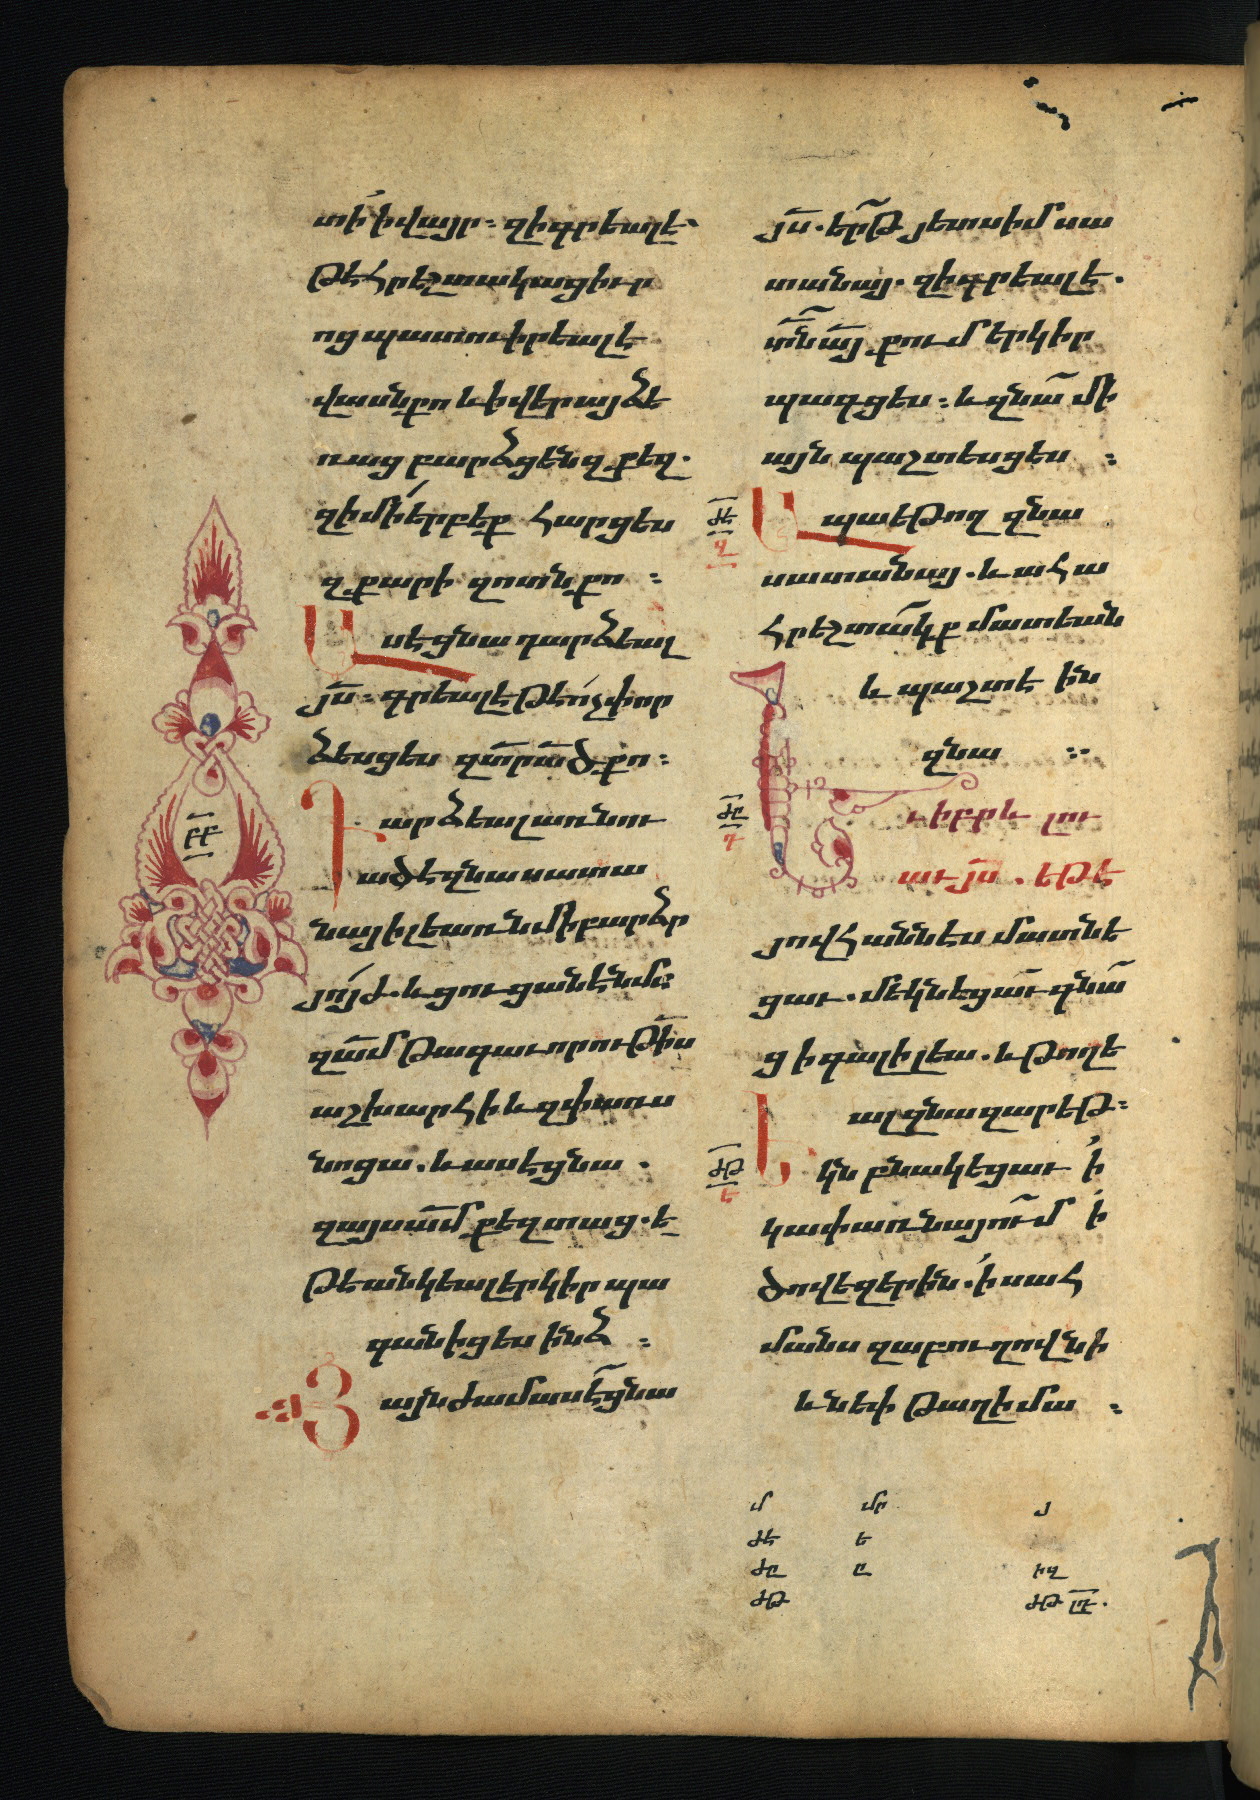 տի՛ ի վայր։ զի գրեալ է՝
թե հրեշտակաց իւր
ոց պատուիրեալ է
վասն քո և ի վերայ ձե
ռաց բարձցեն զքեզ.
զի մի՛ երբեք հարցես
զքարի զոտն քո ։
Ասէ ցնա դարձեալ
յս։ գրեալ է թե ո՛չ փոր
ձեսցես զտր ած քո։
Դարձեալ առնու
ածէ զնա սատա
նայ ի լեառն մի բարձր
յո՛յժ. և ցուցանէ նմա
զամ թագաւորութիս
աշխարհի և զփառս
նոցա. և ասէ ցնա .
զայս ամ քեզ տաց. ե
թե անկեալ երկիր պա
գանիցես ինձ ։
Յայնժամ ասէ ցնա
յս. երթ յետս իմ սա
տանայ. զի գրեալ է.
տն այ քում երկիր
պագցես։ և զնա մի
այն պաշտեսցես ։
ԺԷ
Ապա եթող զնա
Զ
սատանայ. և ահա
հրեշտակք մատեան
և պաշտէին
զնա ։
ԲԲ
ԺԸ
Եւ իբրև լու
Դ
աւ յս . եթէ
յովհաննէս մատնե
ցաւ. մեկնեցաւ գնա
ց ի գալիլեա. և թողե
ալ զնազարեթ։
ԺԹ
Եկն բնակեցաւ ի՛
Ե
կափառնայում ի՛
ծովեզերին. ի՛ սահ
մանս զաբուղովնի
և նեփթաղիմա ։
մ մր յ
ԺԷ Ե
ԺԸ Ը ԻԶ
ԺԹ ԺԹ